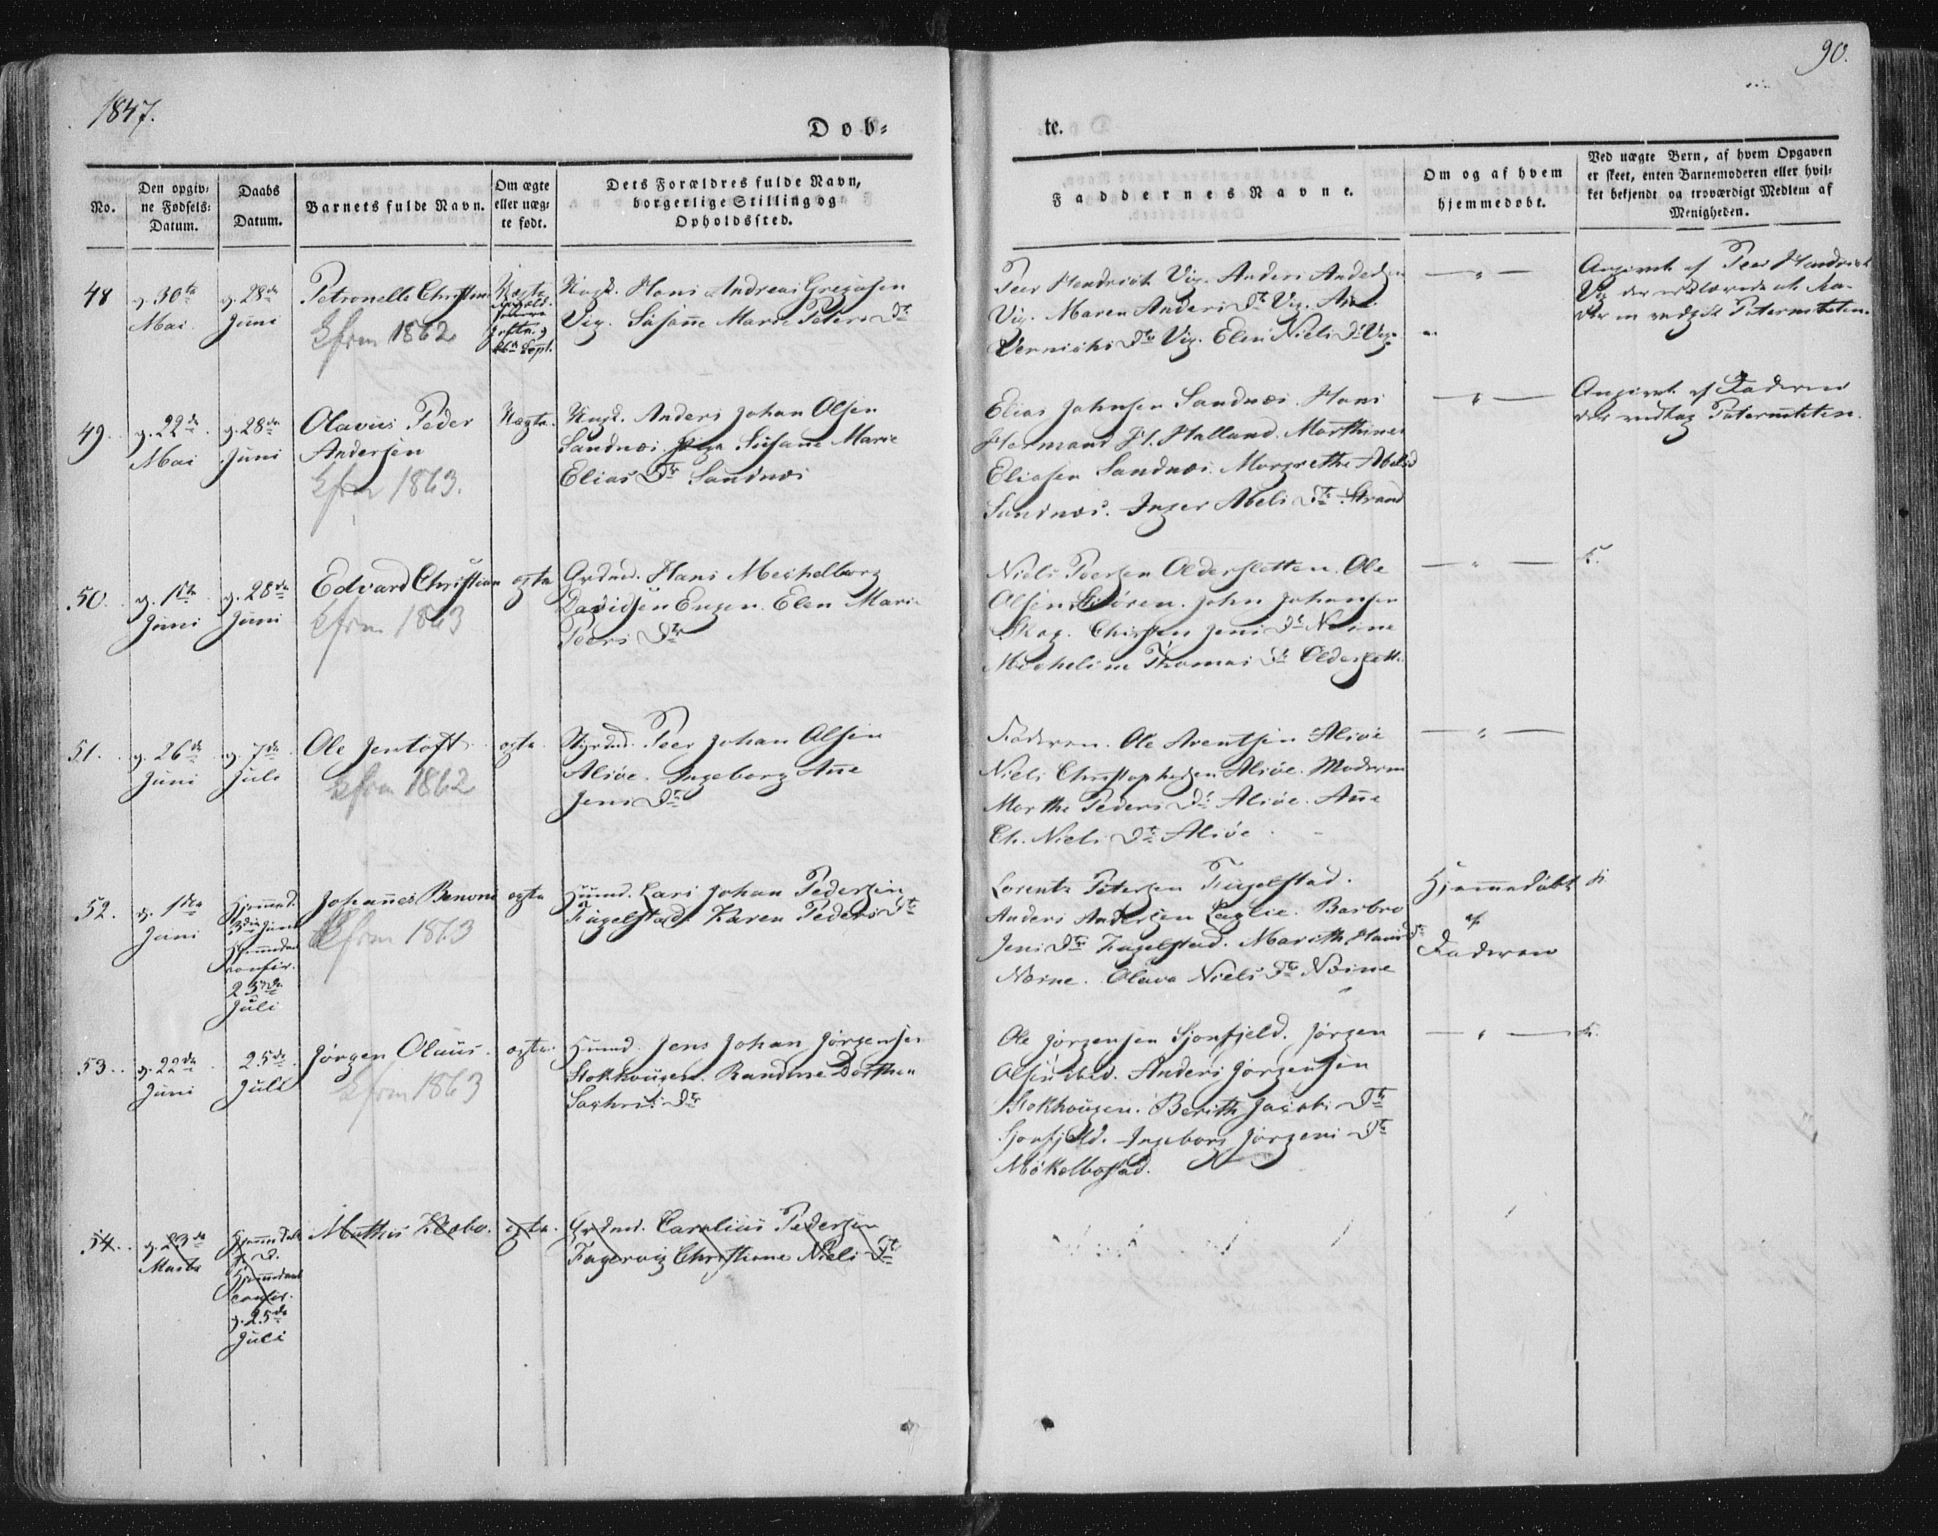 1847.
90.
Døb-
te.
No.
Den opgiv-
ne Fødsels-
Datum.
Daabs
Datum.
Barnets fulde Navn.
Om ægte
eller uæg-
te født.
Dets Forældres fulde Navn,
borgerlige Stilling og
Opholdssted.
Faddernes Navne.
Om og af hvem
hjemmedøbt.
Ved uægte Børn, af hvem Opgaven
er skeet, enten Barnemoderen eller hvil-
ket bekjendt og troværdigt Medlem af
Menigheden.
48
d. 30te
Mai
d. 28de
Juni
Petronelle Christine
Kfrm 1862
Uægte
Ungk. Hans Andreas Gregusen
Vig. Susanne Marie Peters Dtr
Peer Hendrich Vig. Anders Andersen
Vig. Maren Anders Dtr Vig. Ane
Dtr Vig. Elen Niels Dtr Vig.
Angivet af Peer Hendrich
Vig der erklærede at Fa-
der er vedgik Paterniteten.
49.
d. 22de
Mai
d. 28de
Juni
Olavus Peder
Andersen
Kfrm 1863.
Uægte
Ungk. Anders Johan Olsen
Sandnæs Susanne Marie
Elias Dtr Sandnæs
Elias Johnsen Sandnæs. Hans
Hermand H. Halland. Morthines
Eliasen Sandnæs. Margrethe Abels D
Sandnæs. Inger Abels Dtr Strand
Angivet af Faderen
der vedtog Paterniteten.
50.
d. 1ste
Juni
d. 28de
Juni
Edvard Christian
Kfrm 1863
ægte
Grdmd. Hans Mechelborg
Davidsen Engen. Elen Marie
Peers Dtr
Niels Peersen Oldersletten. Ole
Olsen Støren. John Johansen
Skog. Christen Jens Dtr Nesne
Micheline Thomas Dtr Oldersletten
51.
d. 26de
Juni
d. 7de
Juli
Ole Jentoft
Kfrm 1862
ægte
Peer Johan Olsen
Alsøe. Ingeborg Ane
Jens Dtr
Faderen. Ole Arentsen Alsøe
Niels Christophersen Alsøe. Moderen
Marthe Peders Dtr Alsøe. Ane
Ch. Niels Dtr Alsøe
52.
d. 1ste
Juni
Hjemmed.
3die Juni
confir.
25de
Juli
Johannes Benoni
Kfrm 1863
ægte
Huusmd. Lars Johan Pedersen
Fugelstad. Karen Peders Dtr
Lorents Petersen Fugelstad.
Anders Andersen Barbro
Jens Dtr Fugelstad. Marith Hans Dtr
Nesne. Olava Niels Dtr Nesne
Hjemmedøbt
af
Faderen
53.
d. 22de
Juni
25de
Juli
Jørgen Olaus
Kfrm 1863
ægte
Huusmd. Jens Johan Jørgensen
Stokhougen. Randine Dorthea
Zachris Dtr
Ole Jørgensen Sjonfjeld. Jørgen
Olsen ibid. Anders Jørgensen
Stokhougen. Berith Jacobs Dtr
Sjonfjeld. Ingeborg Jørgens Dtr
Møkelbostad.
54.
d. 23de
Marts
Hjemmedøbt
confir.
d. 25de
Juli
Mathis
ægte
Grdmd. Carolius Pedersen
Fagervig Christiane Niels Dtr